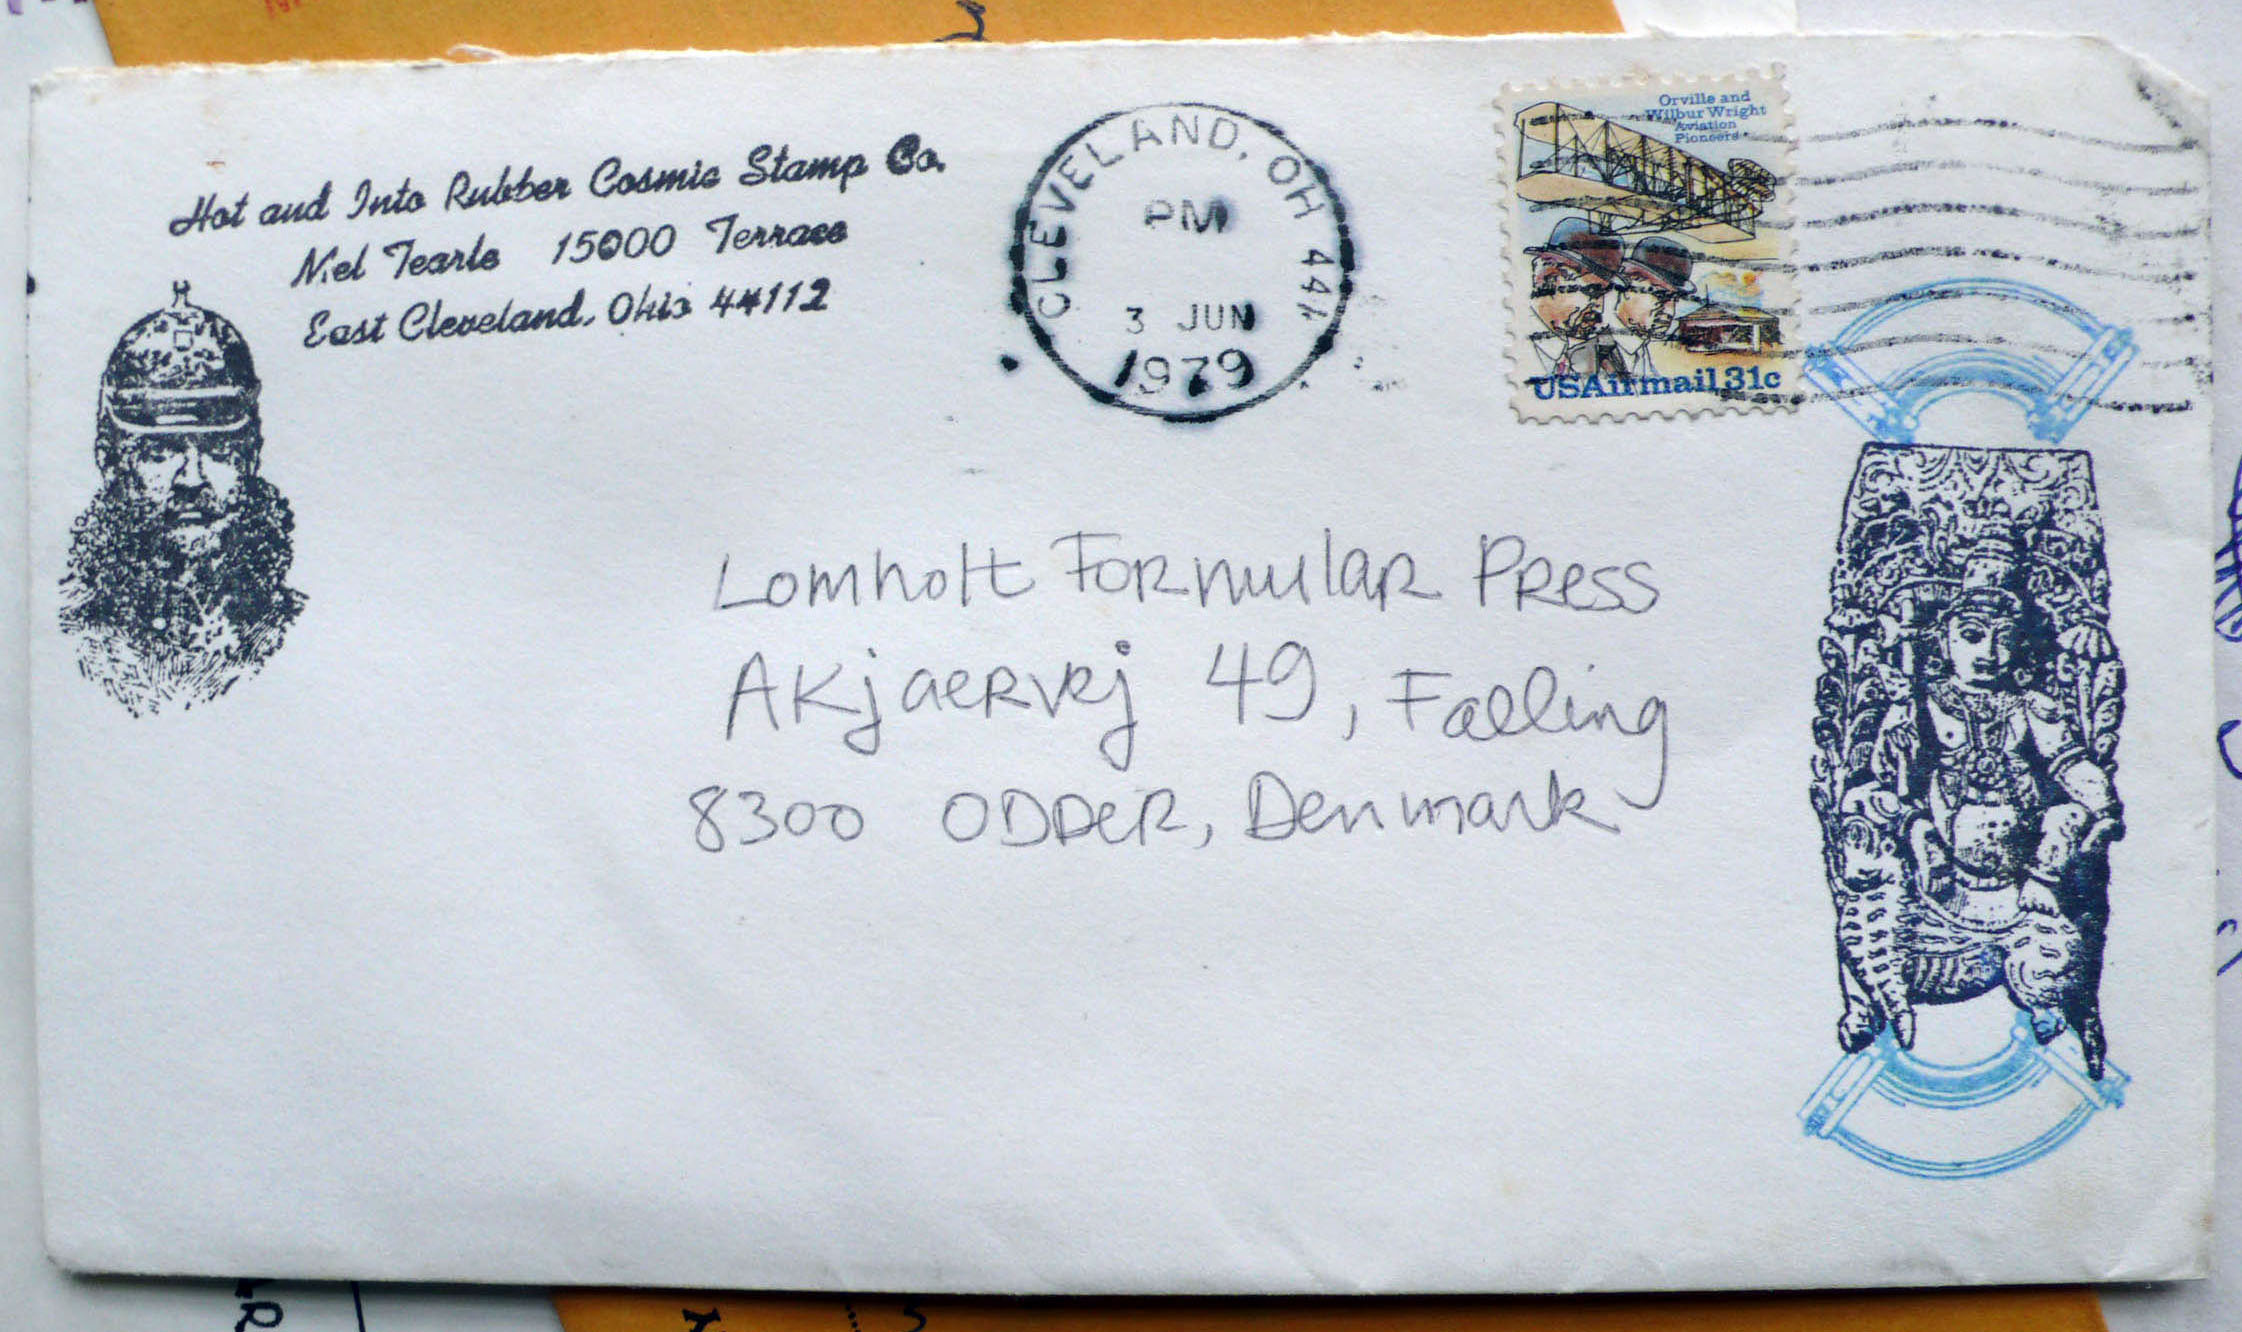 Hot and Into Rubber Cosmic Stamp Co.
Mel Tearle 15000 Terrace
East Cleveland, Ohio 44112
CLEVELAND, OH 441
PM
3 JUN
1979
Orville and
Wilbur Wright
Aviation
Pioneers
USAirmail 31c
Lomholt Formular Press
AKjaervej 49, Falling
8300 ODDER, Denmark